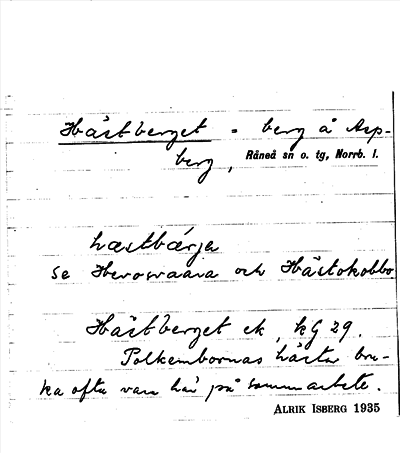 Hästberget = berg å Asp-
berg, Råneå sn o. tg, Norrb. l.
hæstbǽrjɐ
se Herosvaara och Hästokobbo
Hästberget ek, kG 29.
Polkembornas hästar bru-
ka ofta vara här på sommarbete.
ALRIK ISBERG 1935